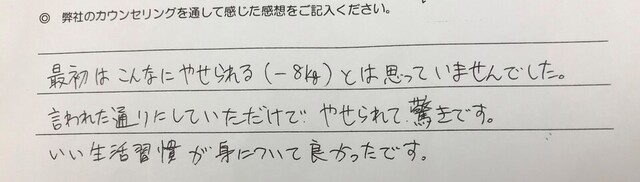 ◎ 弊社のカウンセリングを通して感じた感想をご記入ください。
最初はこんなにやせられる(-8kg)とは思っていませんでした。
言われた通りにしていただけで やせられて 驚きです。
いい生活習慣が身について良かったです。